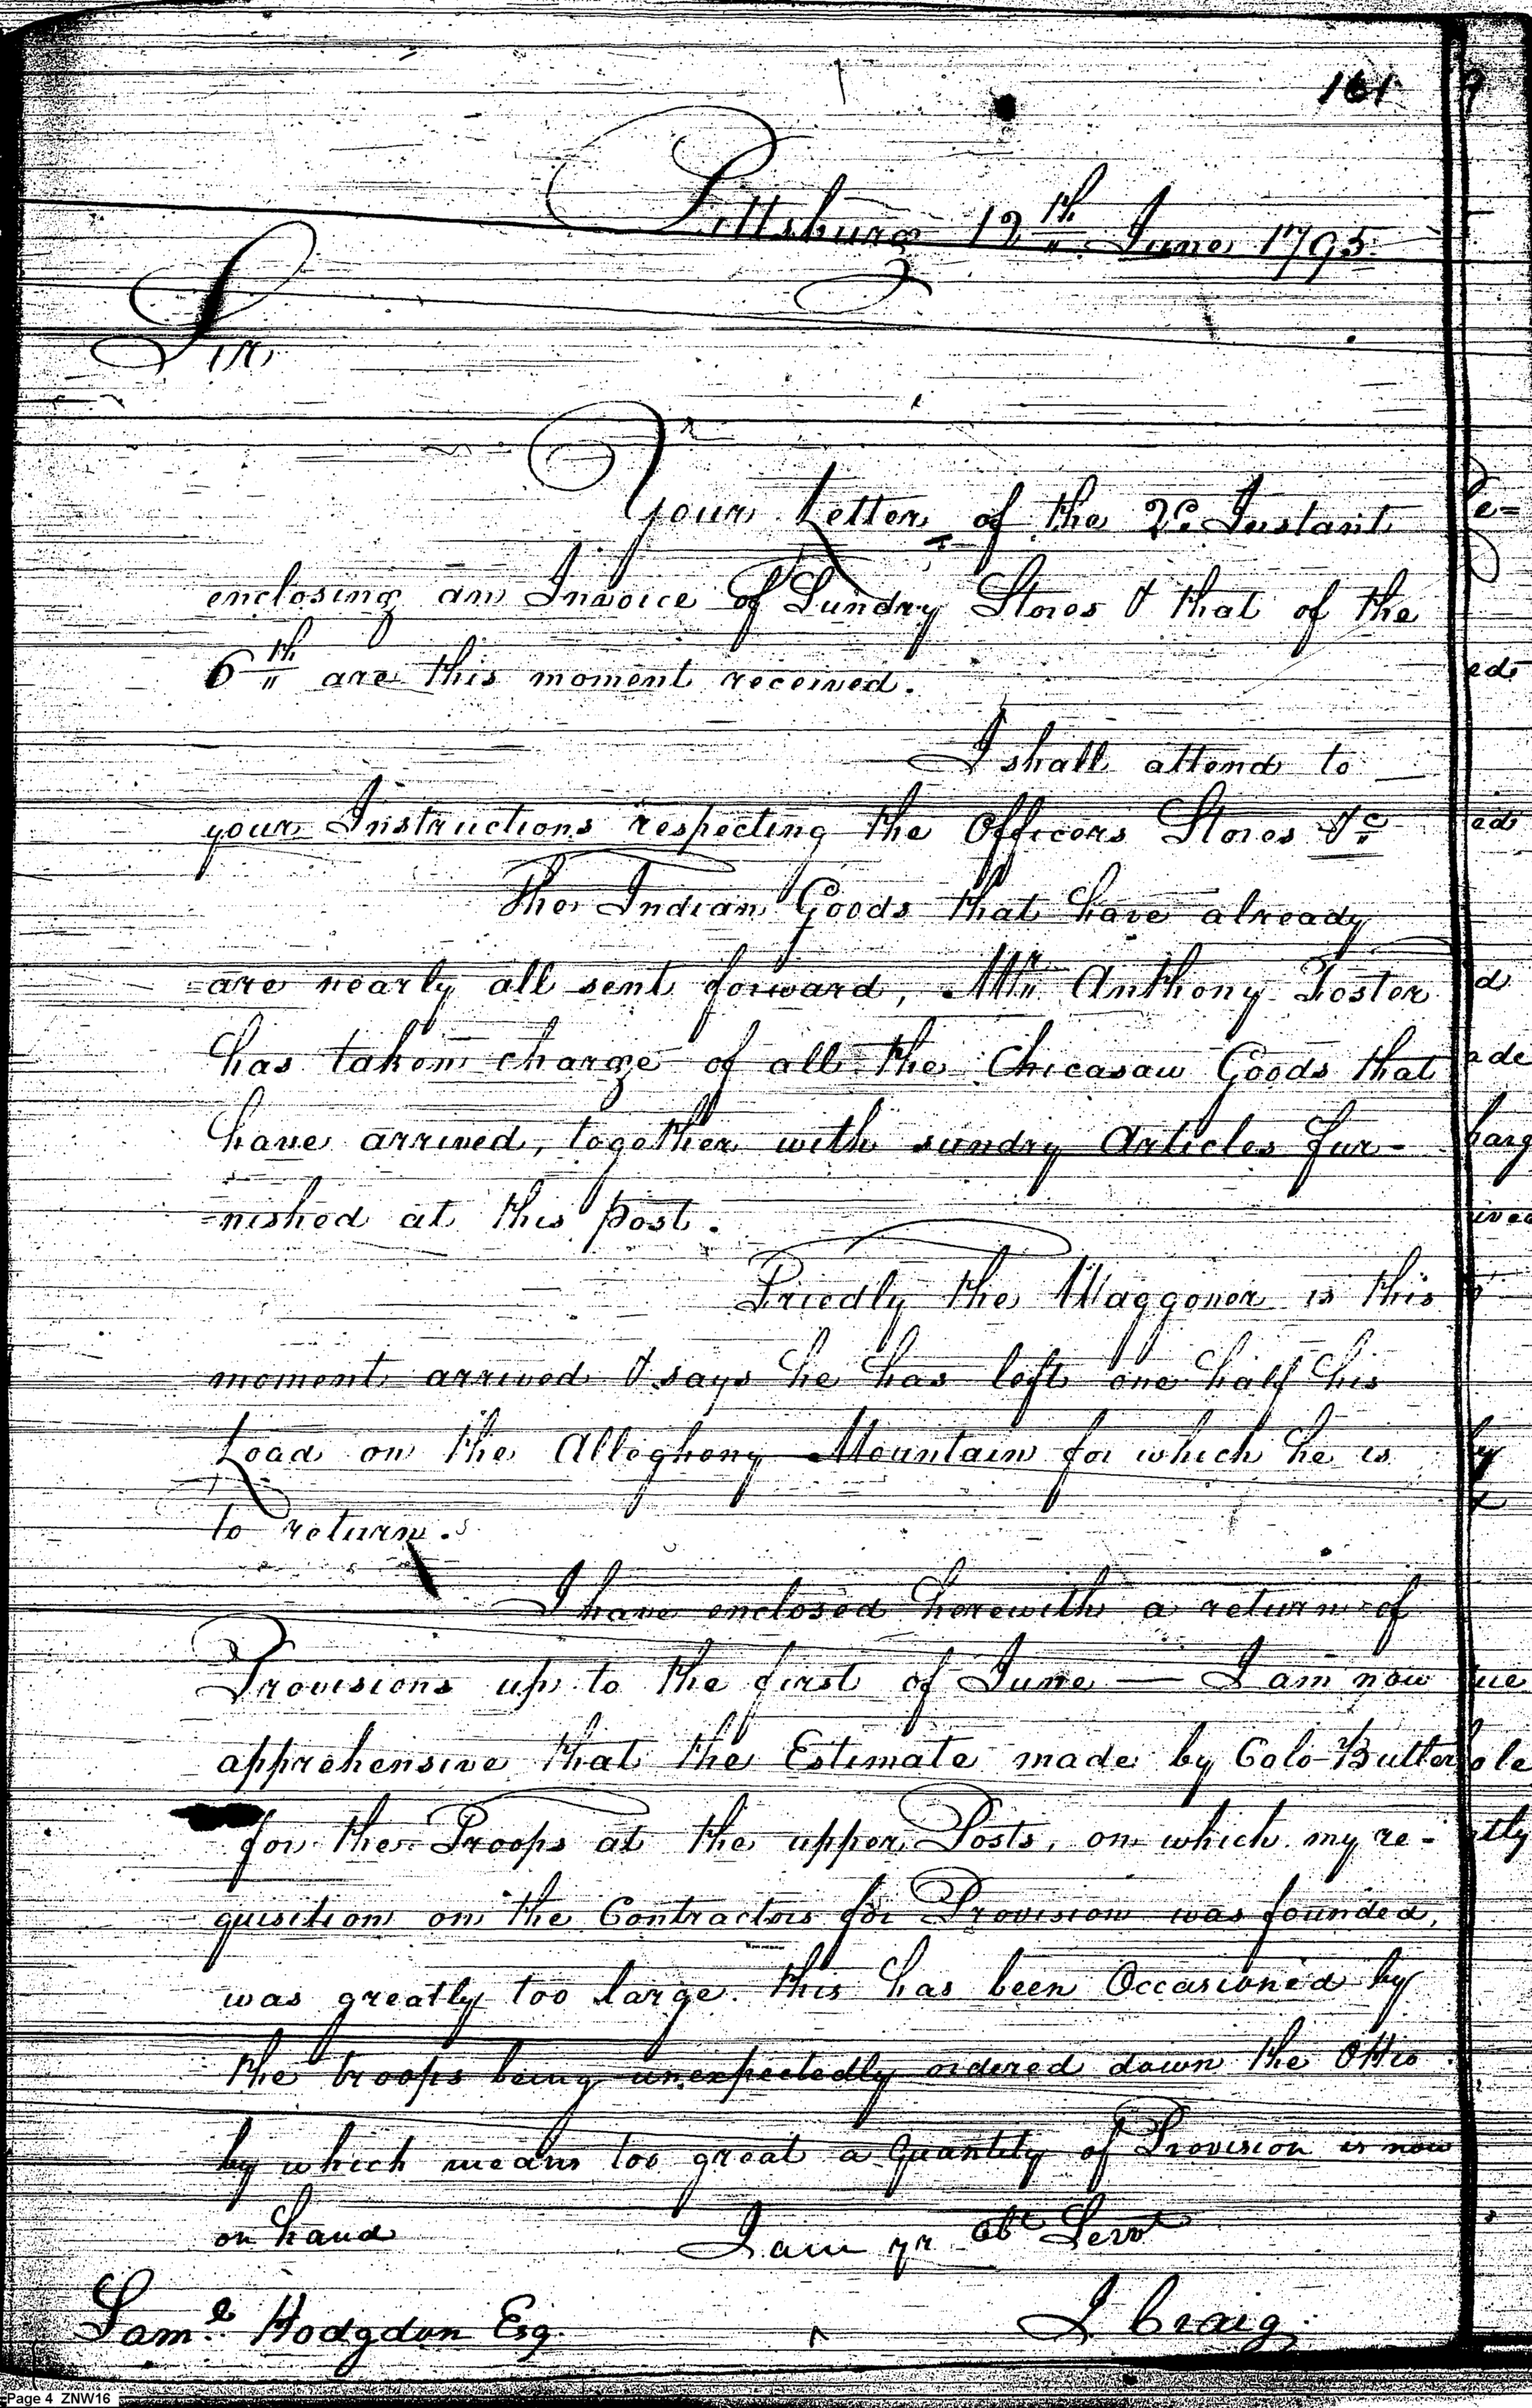 161
Pittsburg 12th June 1795
Sir
Your Letter of the 2d Instant
enclosing an Invoice of Sundry Stores & that of the
6th are this moment received.
I shall attend to
your Instructions respecting the Officers Stores &c
The Indian Goods that have already
are nearly all sent forward, Mr Anthony Foster
has taken charge of all the Chicasaw Goods that
have arrived, together with sundry Articles fur-
-nished at this post.
the Waggoner is this
moment arrived & says he has left one half his
Load on the Alleghony Mountain for which he is
to return.
I have enclosed herewith a return of
Provisions up to the first of June — I am now
apprehensive that the Estimate made by Colo Butler
for the Troops at the upper Posts, on which my re-
quisition on the Contractors for Provision was founded,
was greatly too large. this has been Occasioned by
the troops being unexpectedly ordered down the Ohio
by which means too great a Quantity of Provision is now
on hand
I am yr Obt Servt
I. Craig
Saml Hodgdon Esq.
Page 4 ZNW16